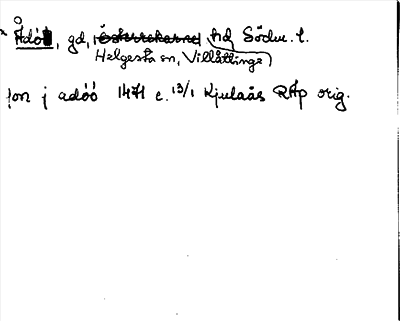 Ådö, gd, hd Södm. l.
Helgesta sn, Villåttinge
jon j adóó 1471 e. 13/1 Kjulaås RAp orig.